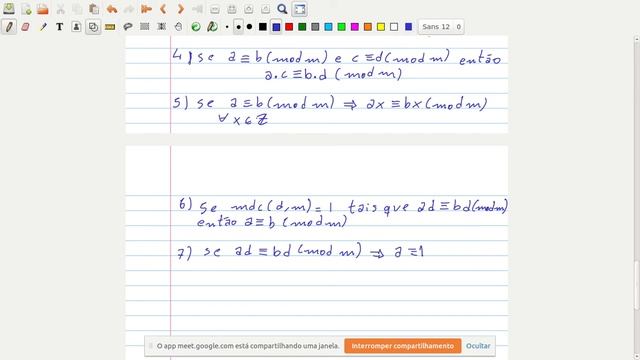 Sans 12
4) se a ≡ b (mod m) e c ≡ d (mod m) então
a.c ≡ b.d (mod m)
5) se a ≡ b (mod m) ⇒ ax ≡ bx (mod m)
∀ x ∈ Z
6) Se mdc (d,m) = 1 tais que ad ≡ bd (mod m)
então a ≡ b (mod m)
7) se ad ≡ bd (mod m) ⇒ a ≡ 1
O app meet.google.com está compartilhando uma janela. Interromper compartilhamento Ocultar